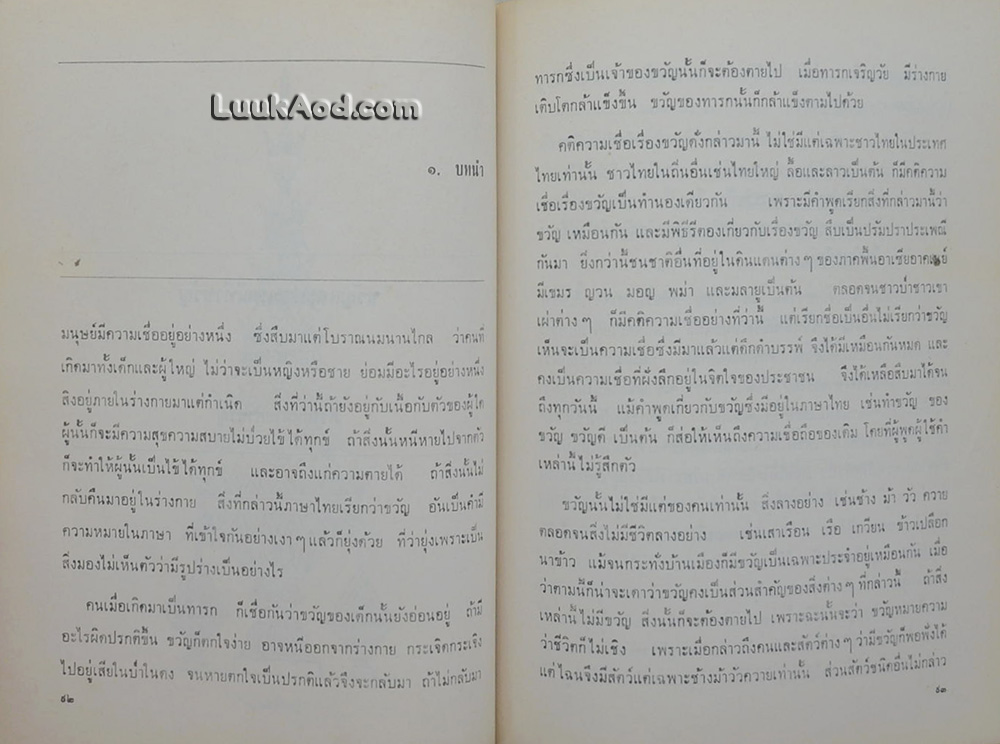 LuukAod.com
๑. บทนำ
มนุษย์มีความเชื่ออยู่อย่างหนึ่ง ซึ่งสืบมาแต่โบราณนมนานไกล ว่าคนที่
เกิดมาทั้งเด็กและผู้ใหญ่ ไม่ว่าจะเป็นหญิงหรือชาย ย่อมมีอะไรอยู่อย่างหนึ่ง
สิงอยู่ภายในร่างกายมาแต่กำเนิด สิ่งที่ว่านี้ถ้ายังอยู่กับเนื้อกับตัวของผู้ใด
ผู้นั้นก็จะมีความสุขความสบายไม่ป่วยไข้ได้ทุกข์ ถ้าสิ่งนั้นหนีหายไปจากตัว
ก็จะทำให้ผู้นั้นเป็นไข้ได้ทุกข์ และอาจถึงแก่ความตายได้ ถ้าสิ่งนั้นไม่
กลับคืนมาอยู่ในร่างกาย สิ่งที่กล่าวนี้ภาษาไทยเรียกว่าขวัญ อันเป็นคำมี
ความหมายในภาษา ที่เข้าใจกันอย่างเงาๆ แล้วก็ยุ่งด้วย ที่ว่ายุ่งเพราะเป็น
สิ่งมองไม่เห็นตัวว่ามีรูปร่างเป็นอย่างไร
คนเมื่อเกิดมาเป็นทารก ก็เชื่อกันว่าขวัญของเด็กนั้นยังอ่อนอยู่ ถ้ามี
อะไรผิดปรกติขึ้น ขวัญก็ตกใจง่าย อาจหนีออกจากร่างกาย กระเจิดกระเจิง
ไปอยู่เสียในป่าในดง จนหายตกใจเป็นปรกติแล้วจึงจะกลับมา ถ้าไม่กลับมา
๑๒
ทารกซึ่งเป็นเจ้าของขวัญนั้นก็จะต้องตายไป เมื่อทารกเจริญวัย มีร่างกาย
เติบโตกล้าแข็งขึ้น ขวัญของทารกนั้นก็กล้าแข็งตามไปด้วย
คติความเชื่อเรื่องขวัญดั่งกล่าวมานี้ ไม่ใช่มีแต่เฉพาะชาวไทยในประเทศ
ไทยเท่านั้น ชาวไทยในถิ่นอื่นเช่นไทยใหญ่ ลื้อและลาวเป็นต้น ก็มีคติความ
เชื่อเรื่องขวัญเป็นทำนองเดียวกัน เพราะมีคำพูดเรียกสิ่งที่กล่าวมานี้ว่า
ขวัญ เหมือนกัน และมีพิธีรีตองเกี่ยวกับเรื่องขวัญ สืบเป็นปรัมปราประเพณี
กันมา ยิ่งกว่านี้ชนชาติอื่นที่อยู่ในดินแดนต่างๆ ของภาคพื้นอาเซียอาคเนย์
มีเขมร ญวน มอญ พม่า และมลายูเป็นต้น ตลอดจนชาวป่าชาวเขา
เผ่าต่างๆ ก็มีคติความเชื่ออย่างที่ว่านี้ แต่เรียกชื่อเป็นอื่นไม่เรียกว่าขวัญ
เห็นจะเป็นความเชื่อซึ่งมีมาแล้วแต่ดึกดำบรรพ์ จึงได้มีเหมือนกันหมด และ
คงเป็นความเชื่อที่ฝังลึกอยู่ในจิตใจของประชาชน จึงได้เหลือสืบมาได้จน
ถึงทุกวันนี้ แม้คำพูดเกี่ยวกับขวัญซึ่งมีอยู่ในภาษาไทย เช่นทำขวัญ ของ
ขวัญ ขวัญดี เป็นต้น ก็ส่อให้เห็นถึงความเชื่อถือของเดิม โดยที่ผู้พูดผู้ใช้คำ
เหล่านี้ไม่รู้สึกตัว
ขวัญนั้นไม่ใช่มีแต่ของคนเท่านั้น สิ่งลางอย่าง เช่นช้าง ม้า วัว ควาย
ตลอดจนสิ่งไม่มีชีวิตลางอย่าง เช่นเสาเรือน เรือ เกวียน ข้าวเปลือก
นาข้าว แม้จนกระทั่งบ้านเมืองก็มีขวัญเป็นเฉพาะประจำอยู่เหมือนกัน เมื่อ
ว่าตามนี้ก็น่าจะเดาว่าขวัญคงเป็นส่วนสำคัญของสิ่งต่างๆ ที่กล่าวนี้ ถ้าสิ่ง
เหล่านี้ไม่มีขวัญ สิ่งนั้นก็จะต้องตายไป เพราะฉะนั้นจะว่า ขวัญหมายความ
ว่าชีวิตก็ไม่เชิง เพราะเมื่อกล่าวถึงคนและสัตว์ต่างๆ ว่ามีขวัญก็พอฟังได้
แต่ไฉนจึงมีสัตว์แต่เฉพาะช้างม้าวัวควายเท่านั้น ส่วนสัตว์ชนิดอื่นไม่กล่าว
๑๓